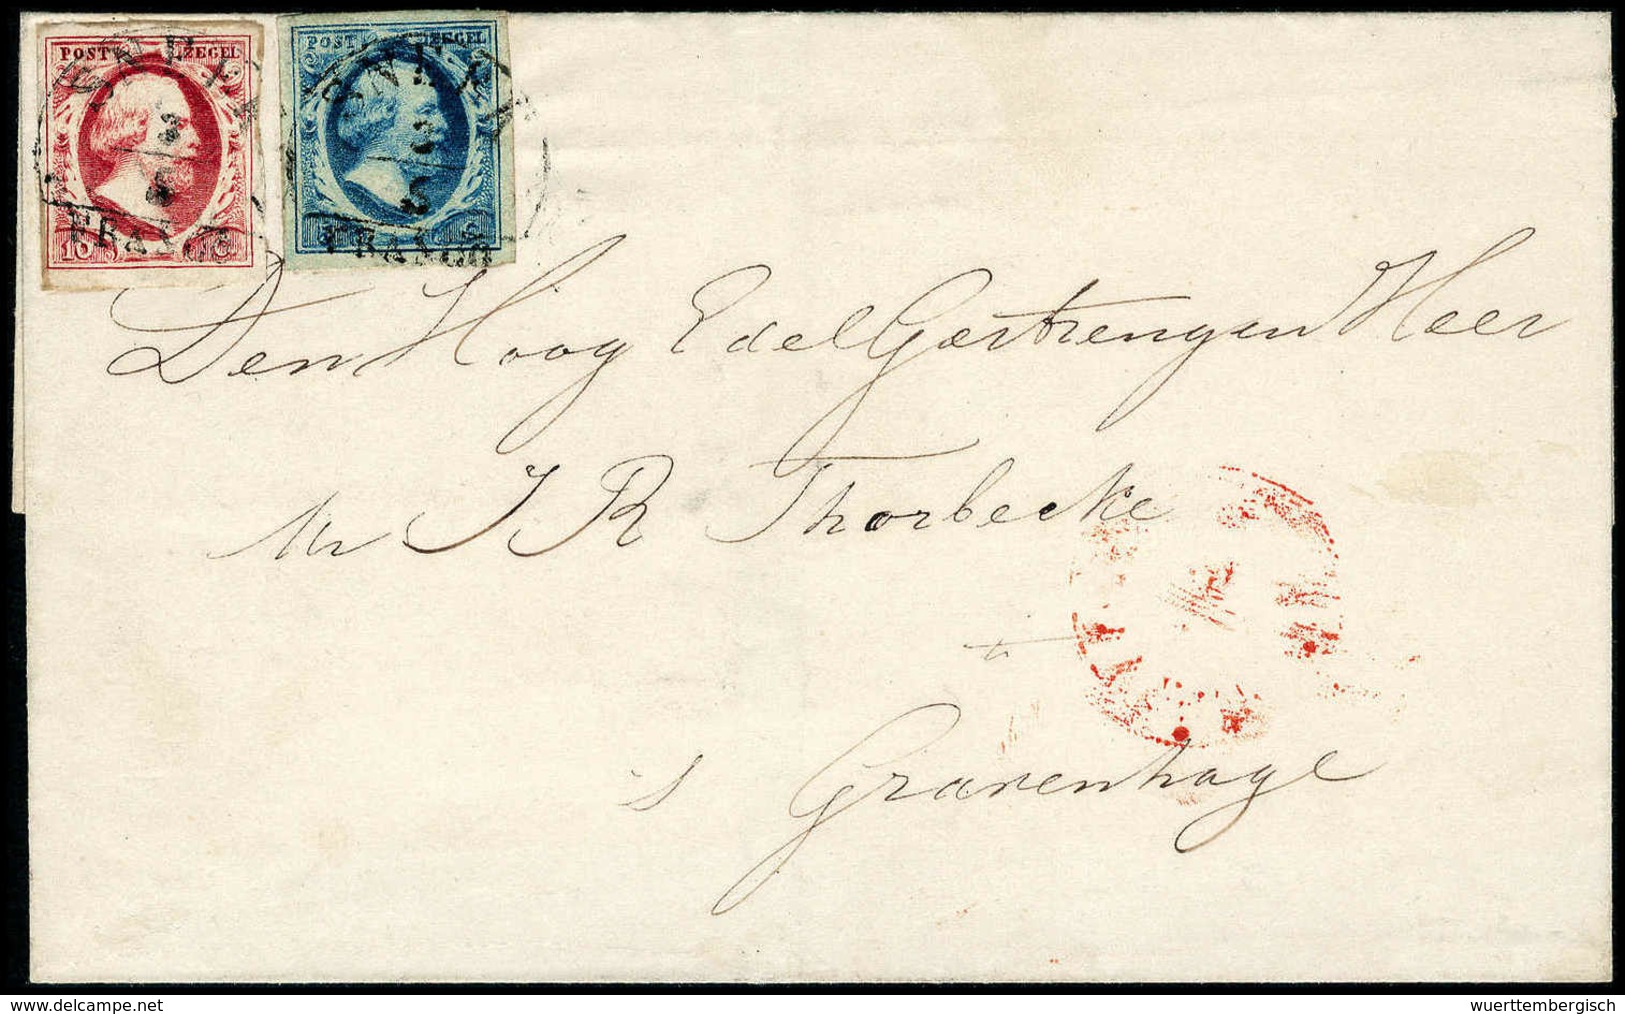 POST ZEGEL
POST ZEGEL
10 C
FRANCO
FRANCO
Den Hoog Edel Gestrengen Heer
Mr J R Thorbecke
te
s Gravenhage
© www.delcampe.net
wuerttembergisch